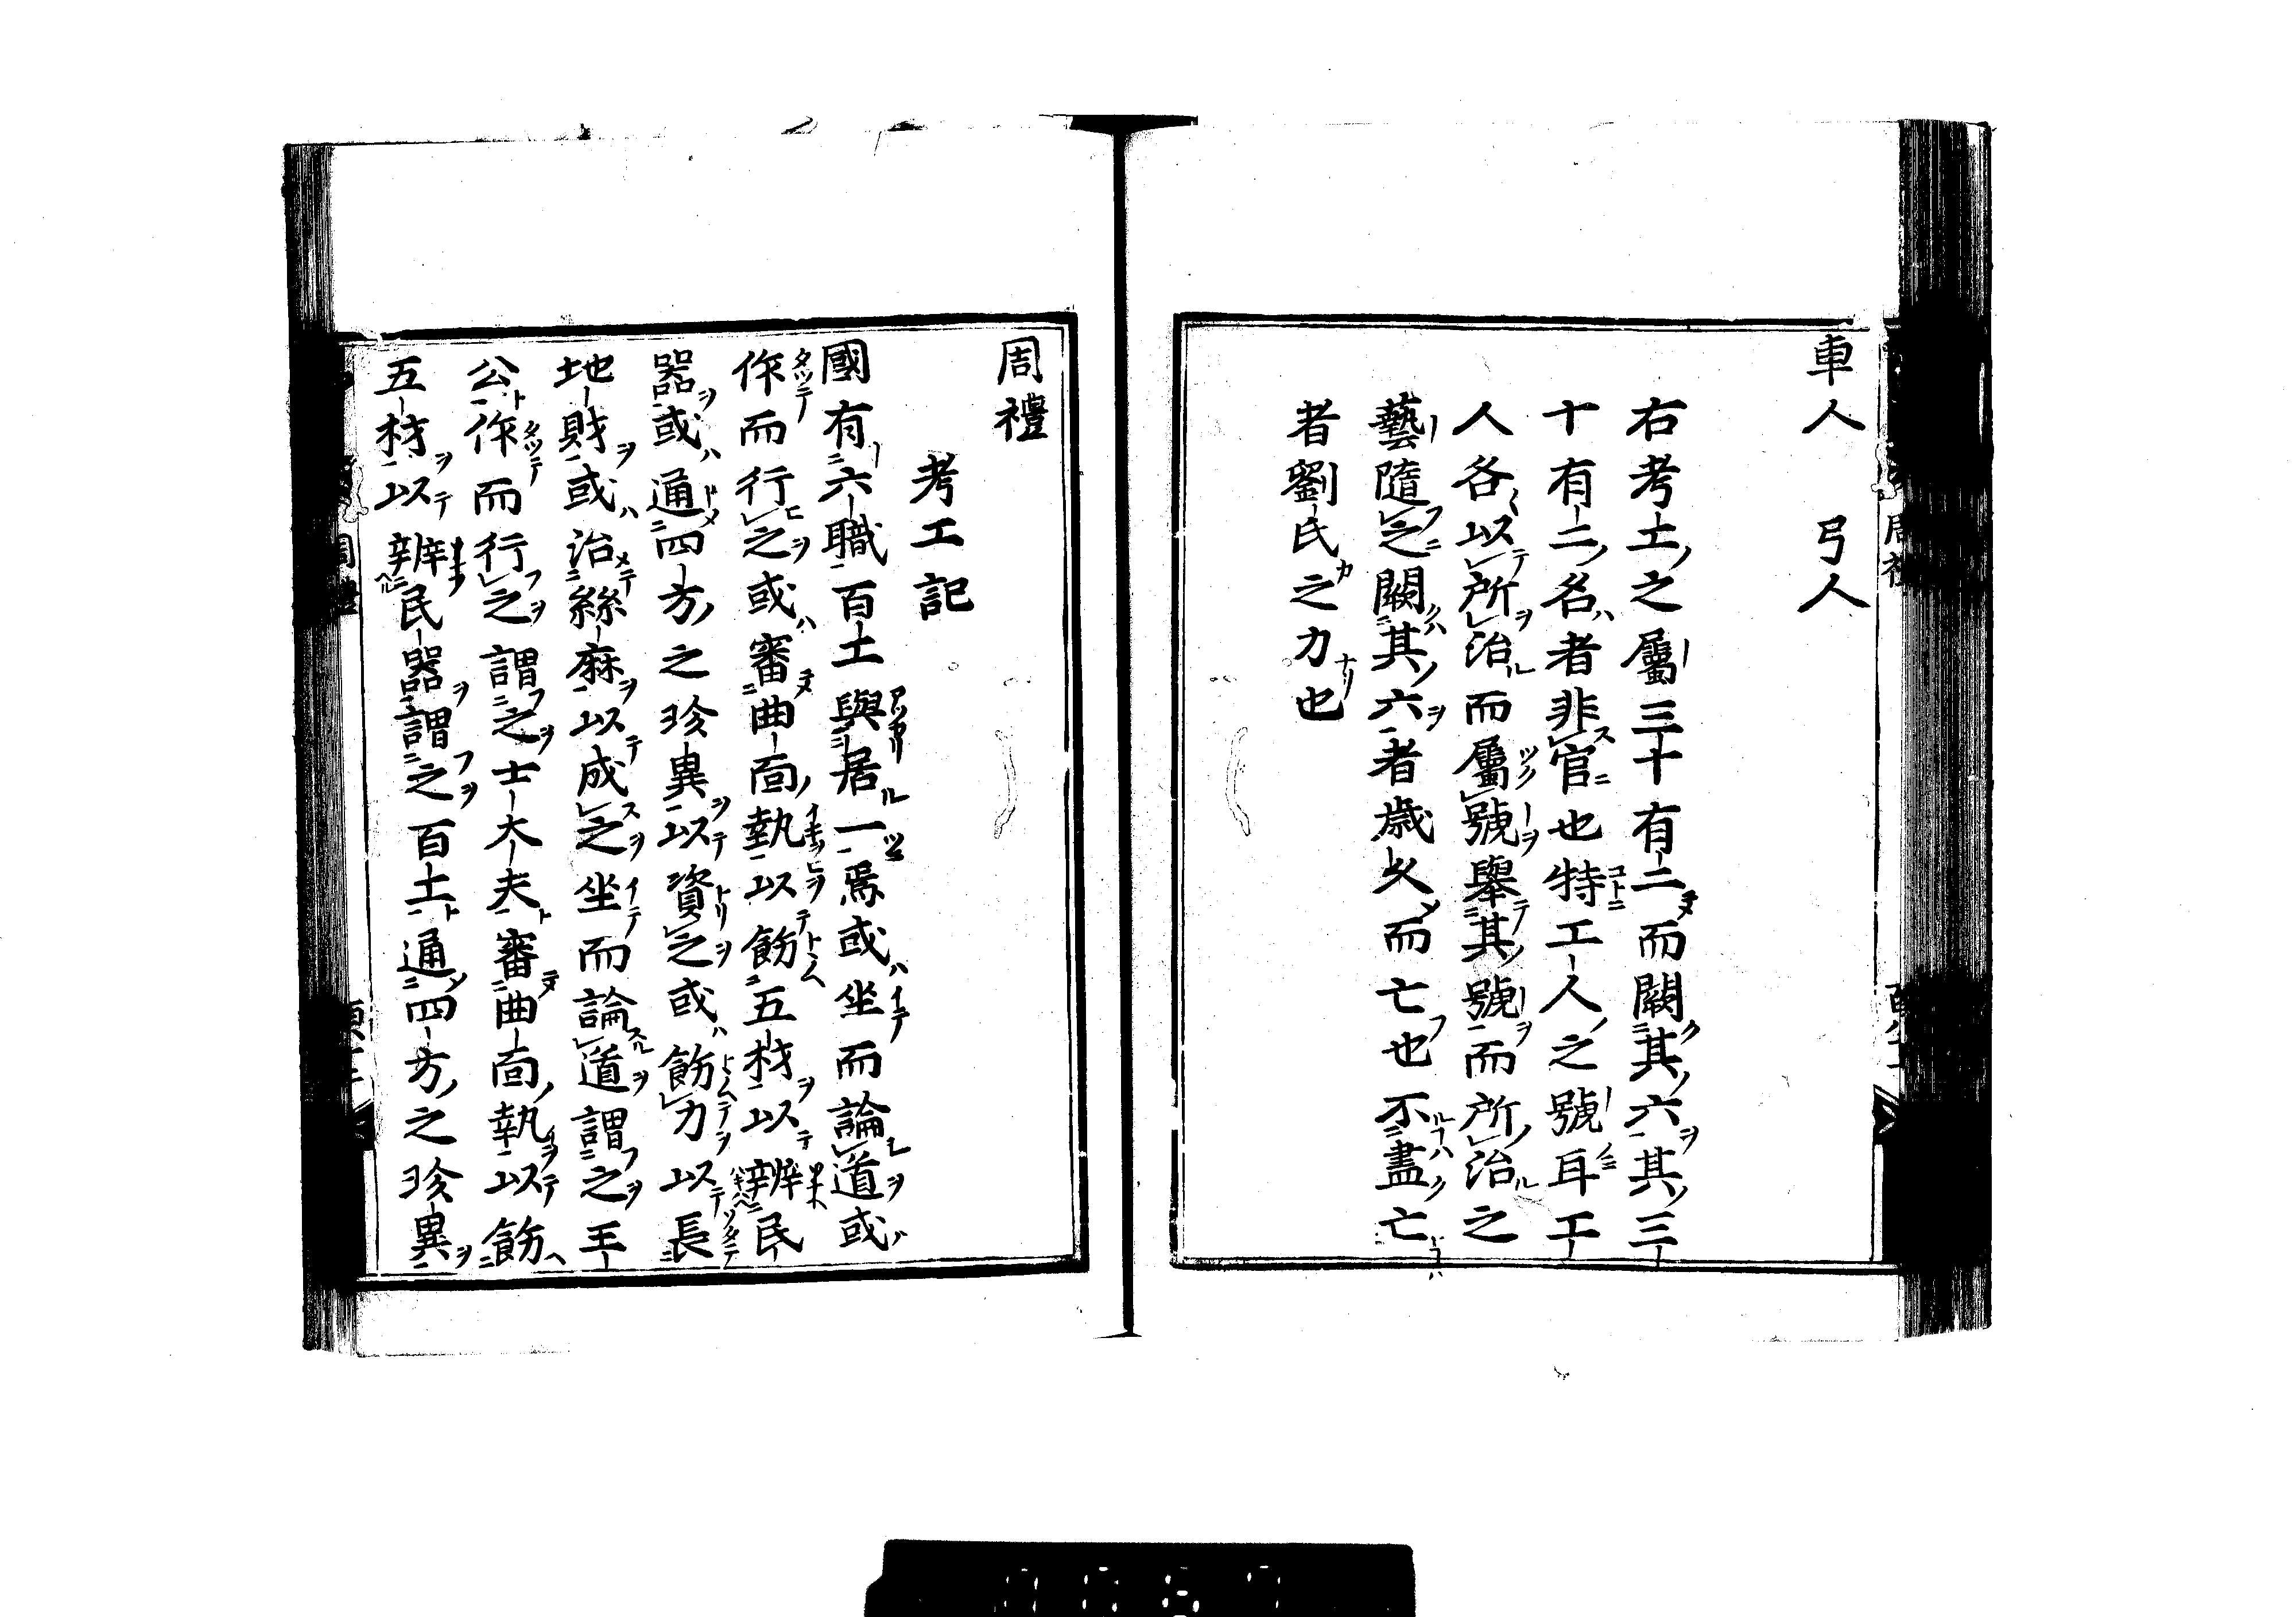 車人　弓人
右考工之屬三十有二而闕其六其三
十有二名者非官也特工人之號耳工
人各以所治而屬號舉其號而所治之
藝隨之闕其六者歲久而亡也不盡亡
者劉氏之力也
周禮
考工記
國有六職百工與居一焉或坐而論道或
作而行之或審曲面執以飭五材以辨民
器或通四方之珍異以資之或飭力以長
地財或治絲麻以成之坐而論道謂之王
公作而行之謂之士大夫審曲面執以飭
五材以辨民器謂之百工通四方之珍異